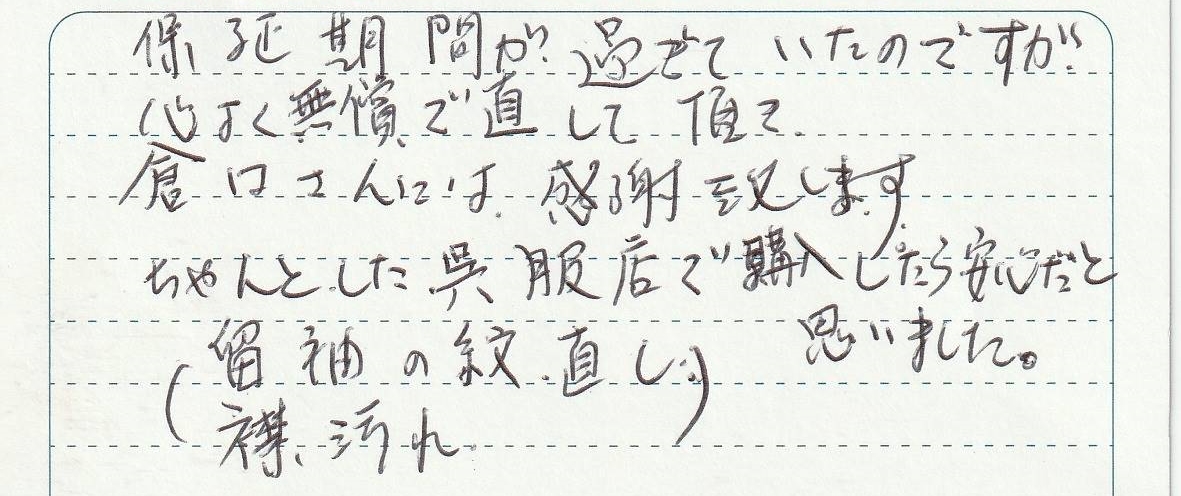 保証期間が過ぎていたのですが
心よく無償で直して頂て、
倉口さんには、感謝致します
ちゃんとした呉服店で購入したら安心だと
思いました。
(留袖の紋直し)
襟、汚れ